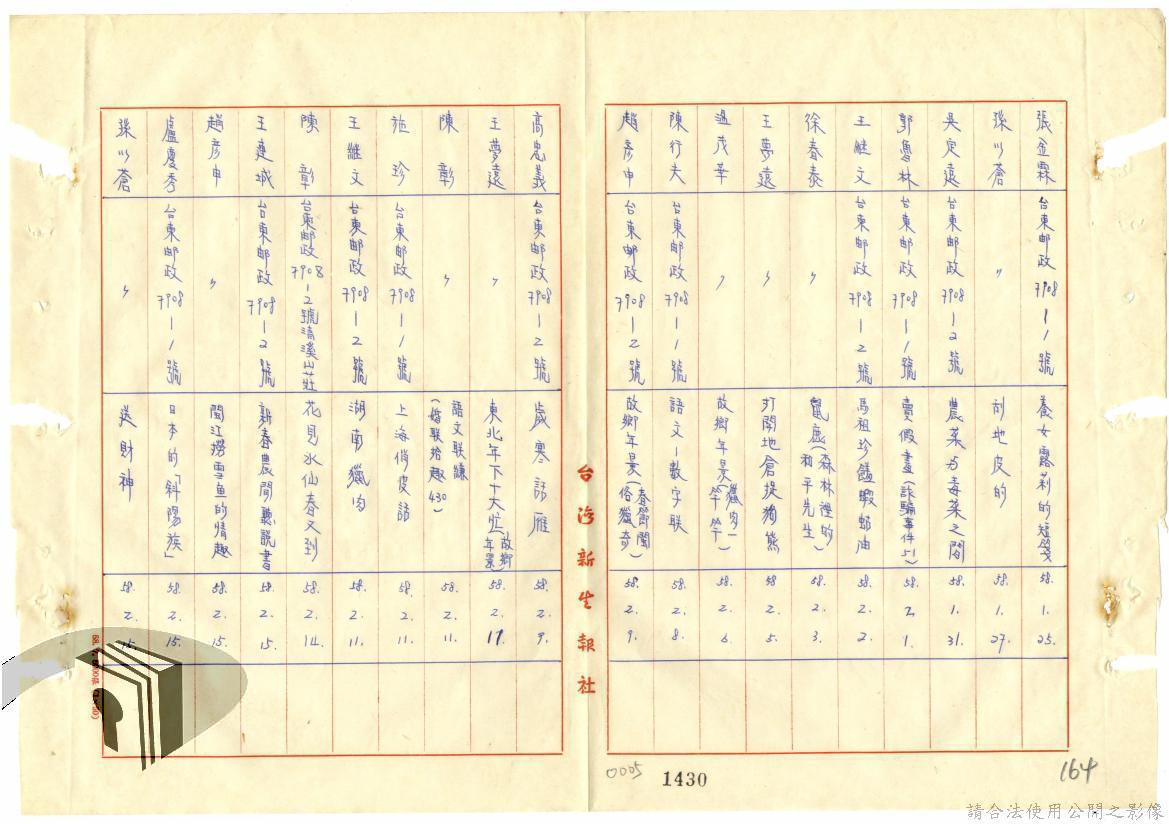 張金霖 台東郵政7908-1號 養女露莉的短箋 58. 1. 25.
孫以蒼 〃 刮地皮的 58. 1. 27.
吳定遠 台東郵政7908-2號 農菜与毒菜之間 58. 1. 31.
郭魯林 台東郵政7908-1號 賣假畫(詐騙事件51) 58. 2. 1.
王繼文 台東郵政7908-2號 馬祖珍饈蝦蛄油 58. 2. 2.
徐春泰 〃 氈鹿(森林裡的和平先生) 58. 2. 3.
王夢遠 〃 打開地倉捉獨熊 58 2. 5.
溫茂華 〃 故鄉年景(獵肉一竿竿) 58. 2. 6.
陳行夫 台東郵政7908-1號 語文-數字联 58. 2. 8.
趙彥申 台東郵政7908-2號 故鄉年景(春節閩俗獵奇) 58. 2. 9.
台灣新生報社
高忠義 台東郵政7908-2號 歲寒話雁 58. 2. 9.
王夢遠 〃 東北年下十大忙(故鄉年景) 58. 2. 11.
陳彰 〃 語文联綴(婚联拾趣430) 58. 2. 11.
施珍 台東郵政7908-1號 上海俏皮話 58. 2. 11.
王繼文 台東郵政7908-2號 湖南獵肉 58. 2. 11.
陳彰 台東郵政7908-2號清溪山莊 花見水仙春又到 58. 2. 14.
王建城 台東郵政7908-2號 新春農閒聽說書 58. 2. 15.
趙彥申 〃 閩江撈雪魚的情趣 58. 2. 15.
盧慶秀 台東郵政7908-1號 日本的「斜陽族」 58. 2. 15.
孫以蒼 〃 送財神 58. 2. 15.
0005 1430
164
請合法使用公開之影像